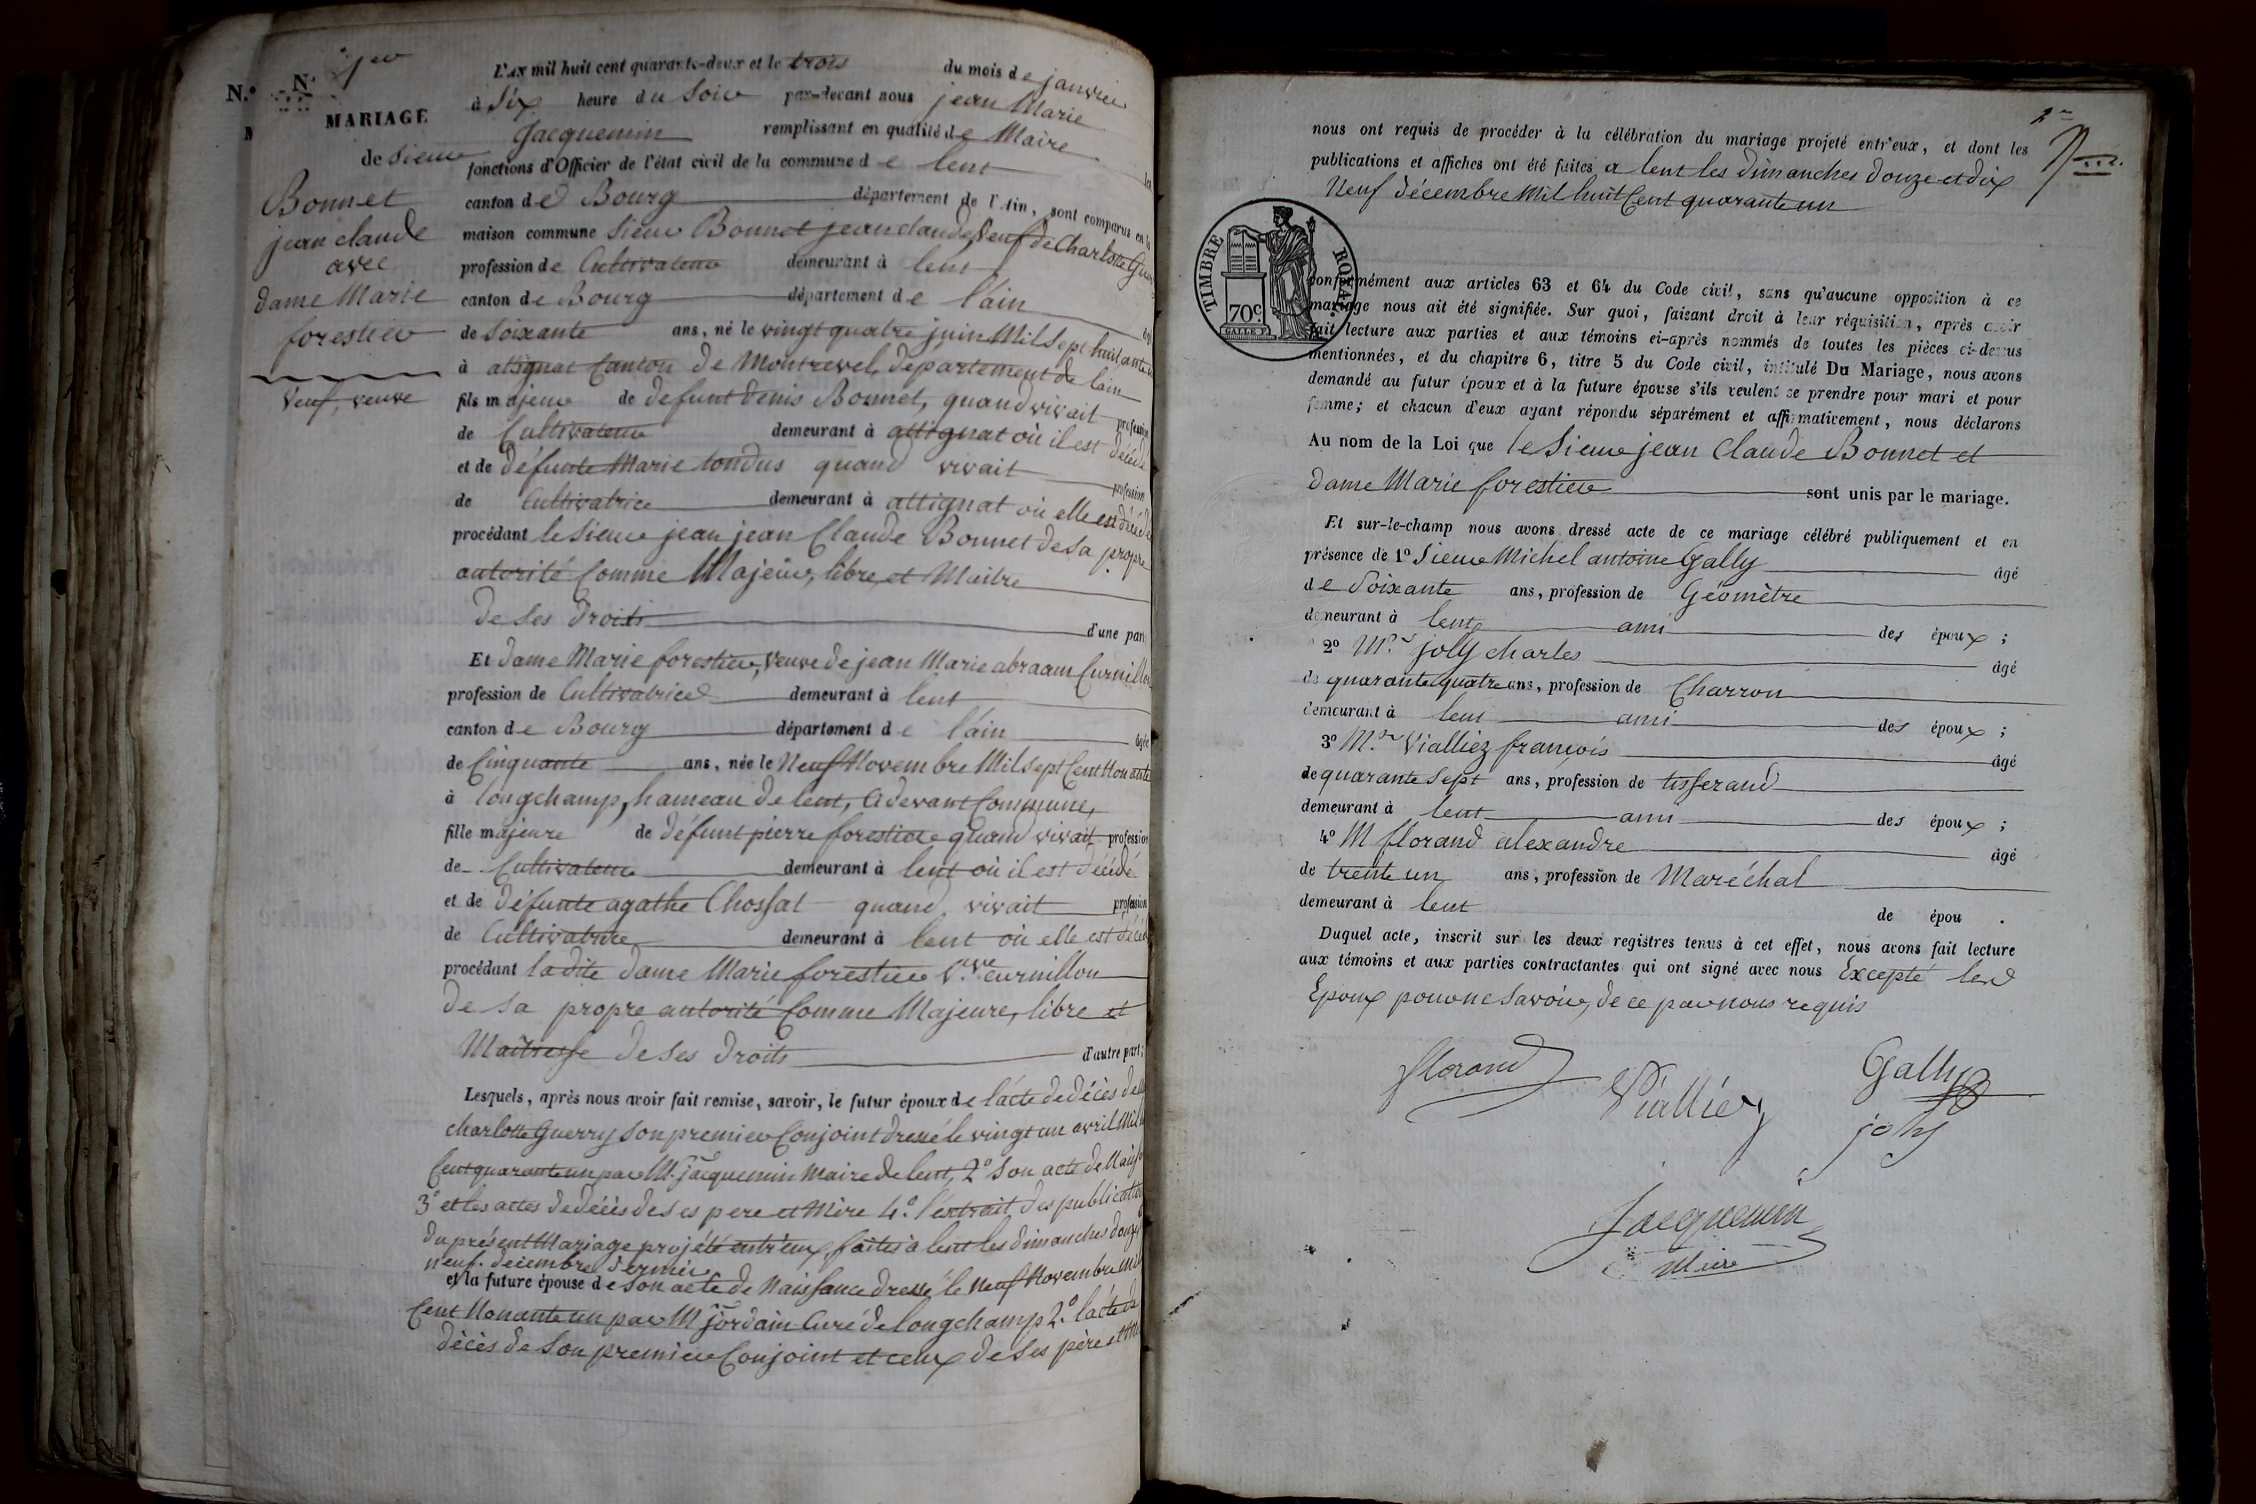 N.º
N.º 1er
MARIAGE
de Sieur
Bonnet
jean claude
avec
dame Marie
forestier
Veuf, veuve
L'AN mil huit cent quarante-deux et le trois du mois de janvier
à Six heure du Soir par-devant nous jean Marie
Jacquemin remplissant en qualité de Maire
fonctions d'Officier de l'état civil de la commune de lent
canton de Bourg département de l'Ain, sont comparus en la
maison commune Sieur Bonnet jean claude Veuf de Charlotte Guerry
profession de Cultivateur demeurant à lent
canton de Bourg département de l'ain
de Soixante ans, né le vingt quatre juin Mil Sept huitante
à attignat Canton de Montrevel, département de lain
fils majeur de defunt denis Bonnet, quand vivait profession
de Cultivateur demeurant à attignat où il est décédé
et de défunte Marie tondus quand vivait profession
de Cultivatrice demeurant à attignat où elle est décédée
procédant le Sieur jean jean Claude Bonnet de Sa propre
autorité Comme Majeur, libre, et Maitre
de Ses droits d'une part
Et dame Marie forestier, Veuve de jean Marie abraam Curnillon
profession de Cultivatrice demeurant à lent
canton de Bourg département de l'ain âgée
de Cinquante ans, née le Neuf Novembre Mil Sept Cent Nonante
à longchamp, hameau de lent, Cidevant Commune,
fille majeure de défunt pierre forestier quand vivait profession
de Cultivateur demeurant à lent où il est décédé
et de défunte agathe Chossat quand vivait profession
de Cultivatrice demeurant à lent où elle est décédé
procédant la dite dame Marie forestier Vve curnillon
de Sa propre autorité Comme Majeure, libre et
Maîtresse de Ses droits d'autre part;
Lesquels, après nous avoir fait remise, savoir, le futur époux de l'acte de décès de
charlotte Guerry Son premier Conjoint dressé le vingt un avril Mil
Cent quarante un par M. jacquemin Maire de lent, 2º Son acte de Naiss
3º et les actes de décès de Ses pere et Mère 4.º l'extrait des publicatio
du présent Mariage projété entr'eux, faites à lent les dimanches douze
neuf. décembre dernier
et la future épouse de Son acte de Naissance dressé le Neuf Novembre mil
Cent Nonante un par M jordain Curé de longchamp 2.º l'acte de
décès de Son premier Conjoint et ceux de Ses père et
nous ont requis de procéder à la célébration du mariage projeté entr'eux, et dont les
publications et affiches ont été faites a lent les dimanches douze et dix
Neuf décembre Mil huit Cent quarante un
TIMBRE ROYAL.
70c
GALLE F.
conformément aux articles 63 et 64 du Code civil, sans qu'aucune opposition à ce
mariage nous ait été signifiée. Sur quoi, faisant droit à leur réquisition, après avoir
fait lecture aux parties et aux témoins ci-après nommés de toutes les pièces ci-dessus
mentionnées, et du chapitre 6, titre 5 du Code civil, intitulé Du Mariage, nous avons
demandé au futur époux et à la future épouse s'ils veulent se prendre pour mari et pour
femme; et chacun d'eux ayant répondu séparément et affirmativement, nous déclarons
Au nom de la Loi que le Sieur jean Claude Bonnet et
dame Marie forestier sont unis par le mariage.
Et sur-le-champ nous avons dressé acte de ce mariage célébré publiquement et en
présence de 1º Sieur Michel antoine Gally âgé
de Soixante ans, profession de Géomètre
demeurant à lent ami des époux;
2º Mr. jolly charles âgé
de quarante quatre ans, profession de Charron
demeurant à lent ami des époux;
3º M.r Vialliez françois âgé
de quarante Sept ans, profession de tisserand
demeurant à lent ami des époux;
4º M florand alexandre âgé
de trente un ans, profession de Maréchal
demeurant à lent de épou .
Duquel acte, inscrit sur les deux registres tenus à cet effet, nous avons fait lecture
aux témoins et aux parties contractantes qui ont signé avec nous Excepté les
Epoux pour ne Savoir, de ce par nous requis
florand
Viallier
Gally
joly
Jacquemin
Maire